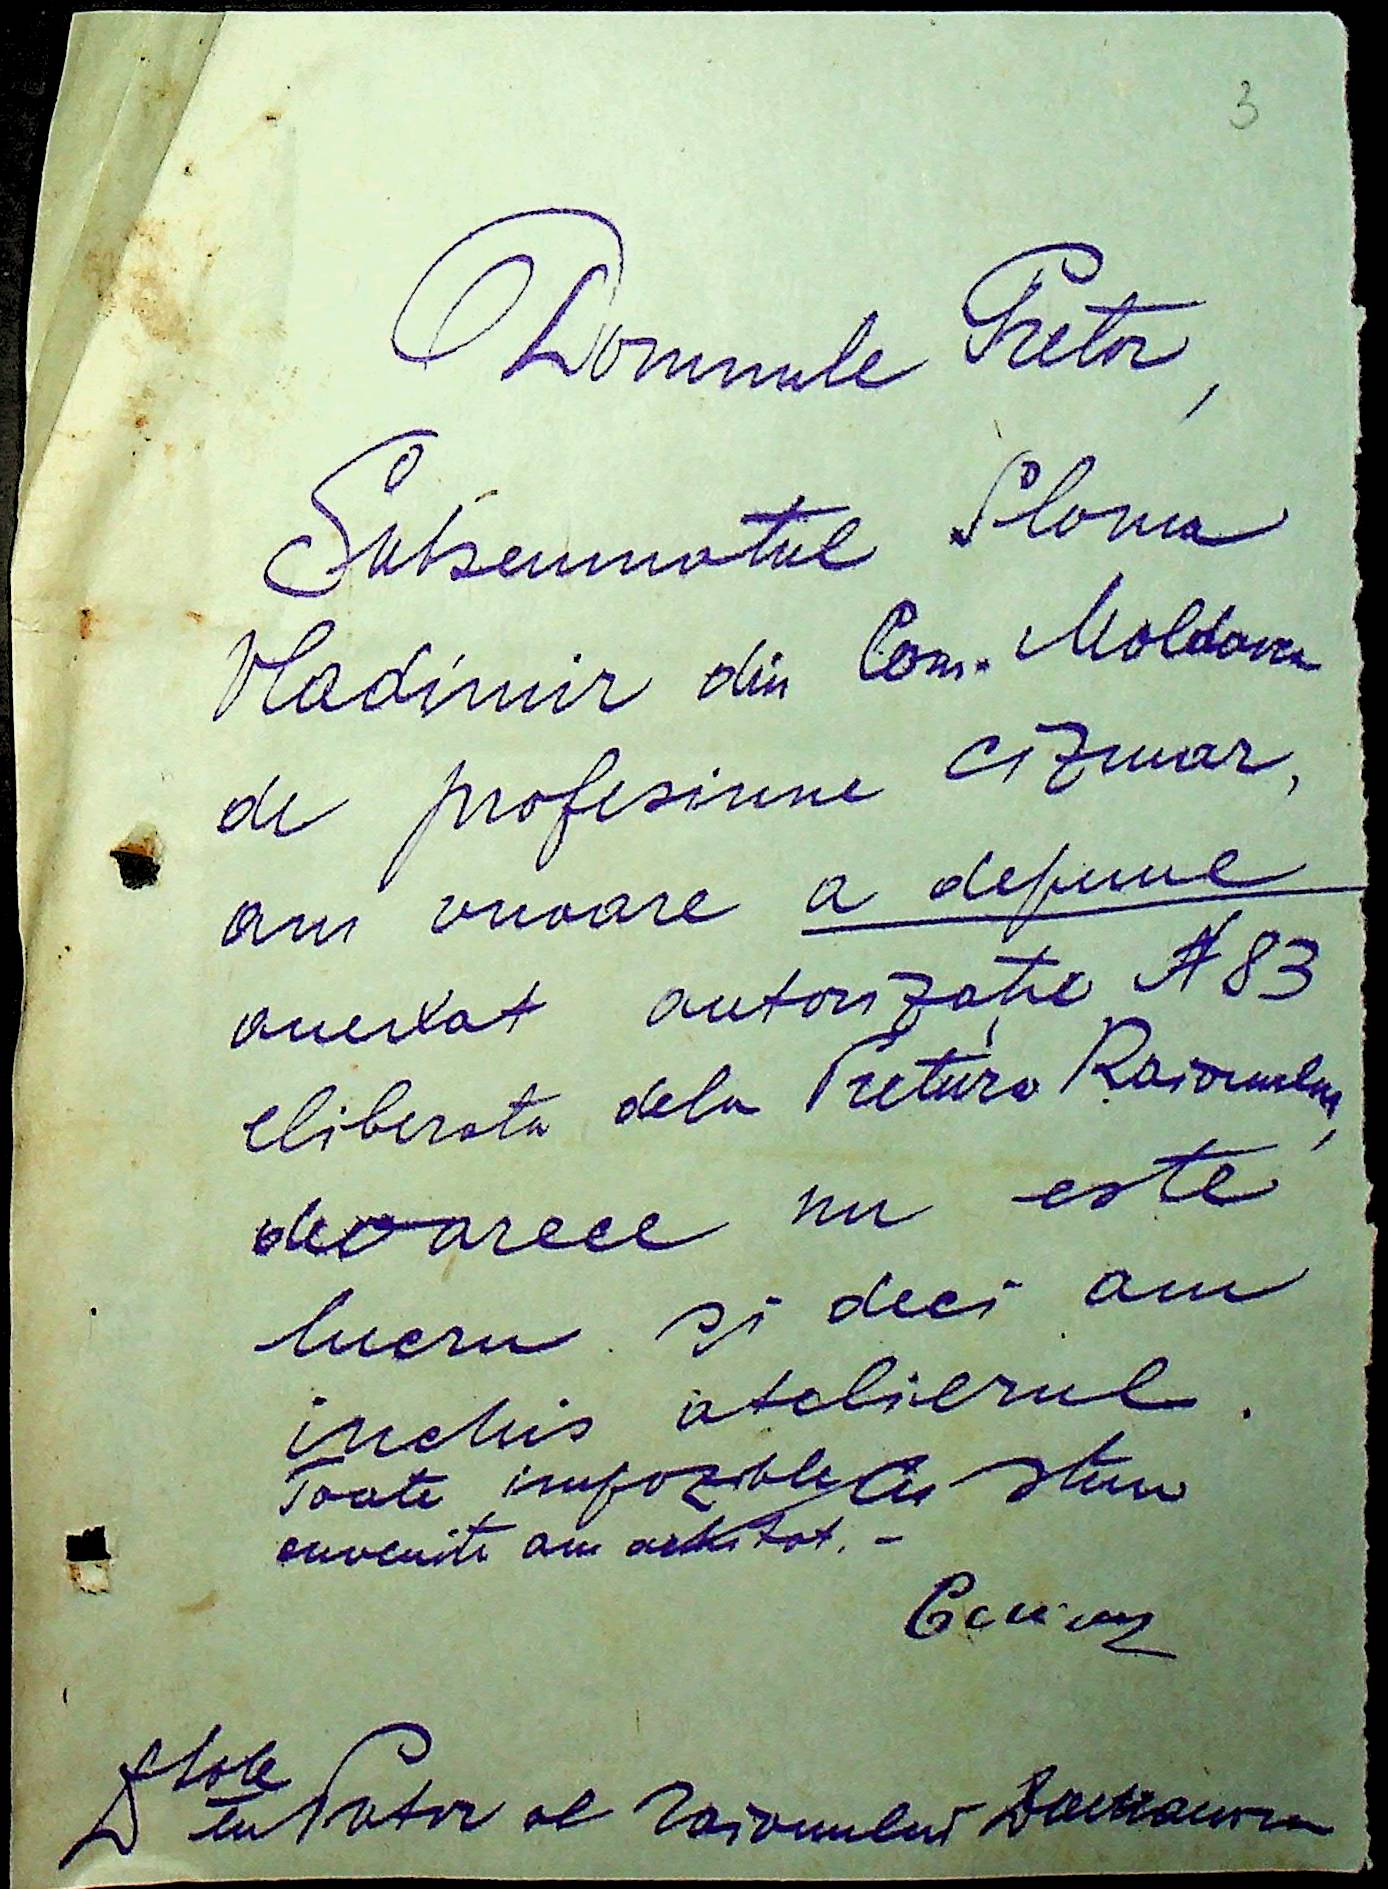 3
Domnule Pretor,
Subsemnatul Slonia
Vladimir din Com. Moldovca
de profesiune cizmar,
am onoare a depune
anexat autorizație № 83
eliberata dela Pretura Raionului,
deoarece nu este
lucru și deci am
inchis atelierul.
Toate impozitele
cuvenite am achitat. -
Dsale
Dlui Pretor al raionului